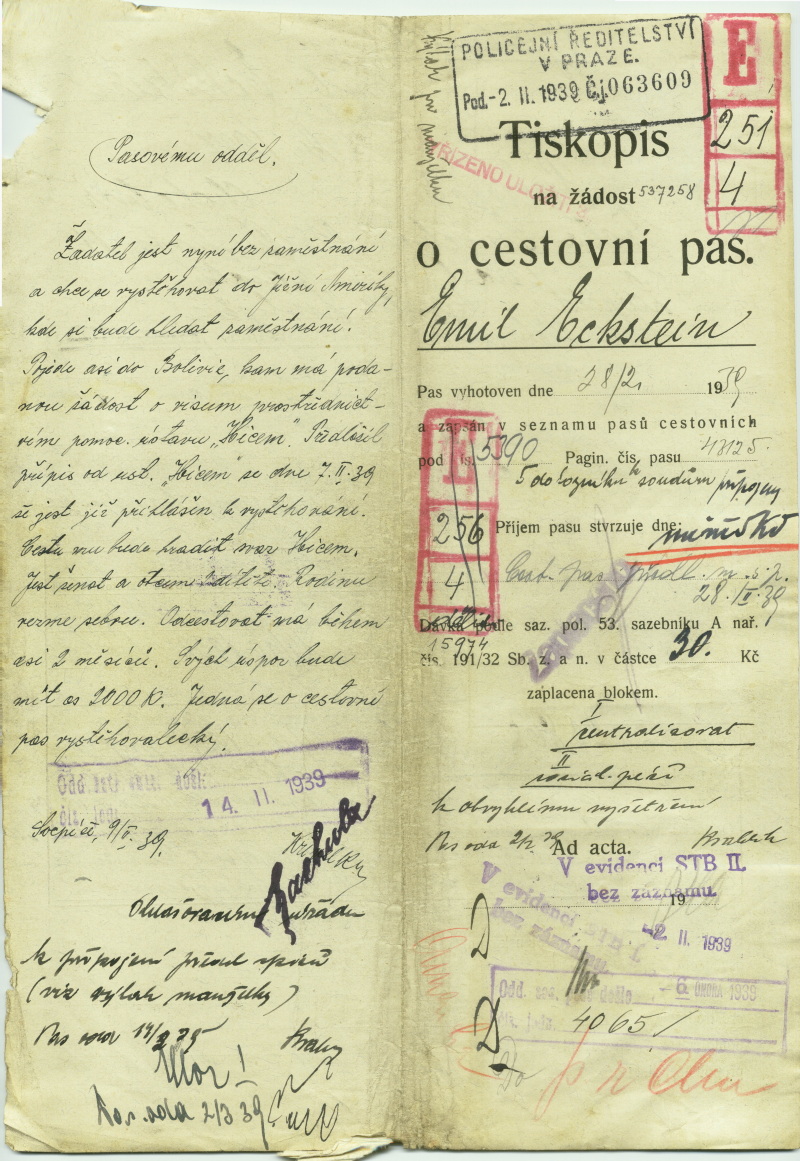 Pasovému odděl.
Žadatel jest nyní bez zaměstnání
a chce se vystěhovat do Jižní Ameriky,
kde si bude hledat zaměstnání.
Pojede asi do Bolivie, kam má poda-
nou žádost o visum prostřednict-
vím pomoc. ústavu „Hicem“. Předložil
přípis od ust. „Hicem“ ze dne 7.II.39
že jest již přihlášen k vystěhování.
Cestu mu bude hradit svaz Hicem.
Jest ženat a otcem dítěte. Rodinu
vezme sebou. Odcestovat má během
asi 2 měsíců. Svých úspor bude
mít as 2000 K. Jedná se o cestovní
pas vystěhovalecký.
14. II. 1939
9/II. 39.
k připojení před spisů
(viz výtah manželky)
14/2 39
2/3 39
Výtah pro manželku
POLICEJNÍ ŘEDITELSTVÍ
V PRAZE.
Pod. -2. II. 1939 Čj. 063609
E
251
4
Tiskopis
na žádost 537258
o cestovní pas.
Emil Eckstein
Pas vyhotoven dne 28/2. 1939
a zapsán v seznamu pasů cestovních
pod čís. 5390 Pagin. čís. pasu 48125.
E
256
4
Příjem pasu stvrzuje dne:
Cest. pas
28.II.39
Dávka podle saz. pol. 53. sazebníku A nař.
15974
čís. 191/32 Sb. z. a n. v částce 30. Kč
zaplacena blokem.
I
centralisovat
II
k obvyklému vyšetření
Ad acta.
V evidenci STB II.
bez záznamu.
19
V evidenci STB I.
bez záznamu
-2. II. 1939
D
D
-6. ÚNORA 1939
4065/